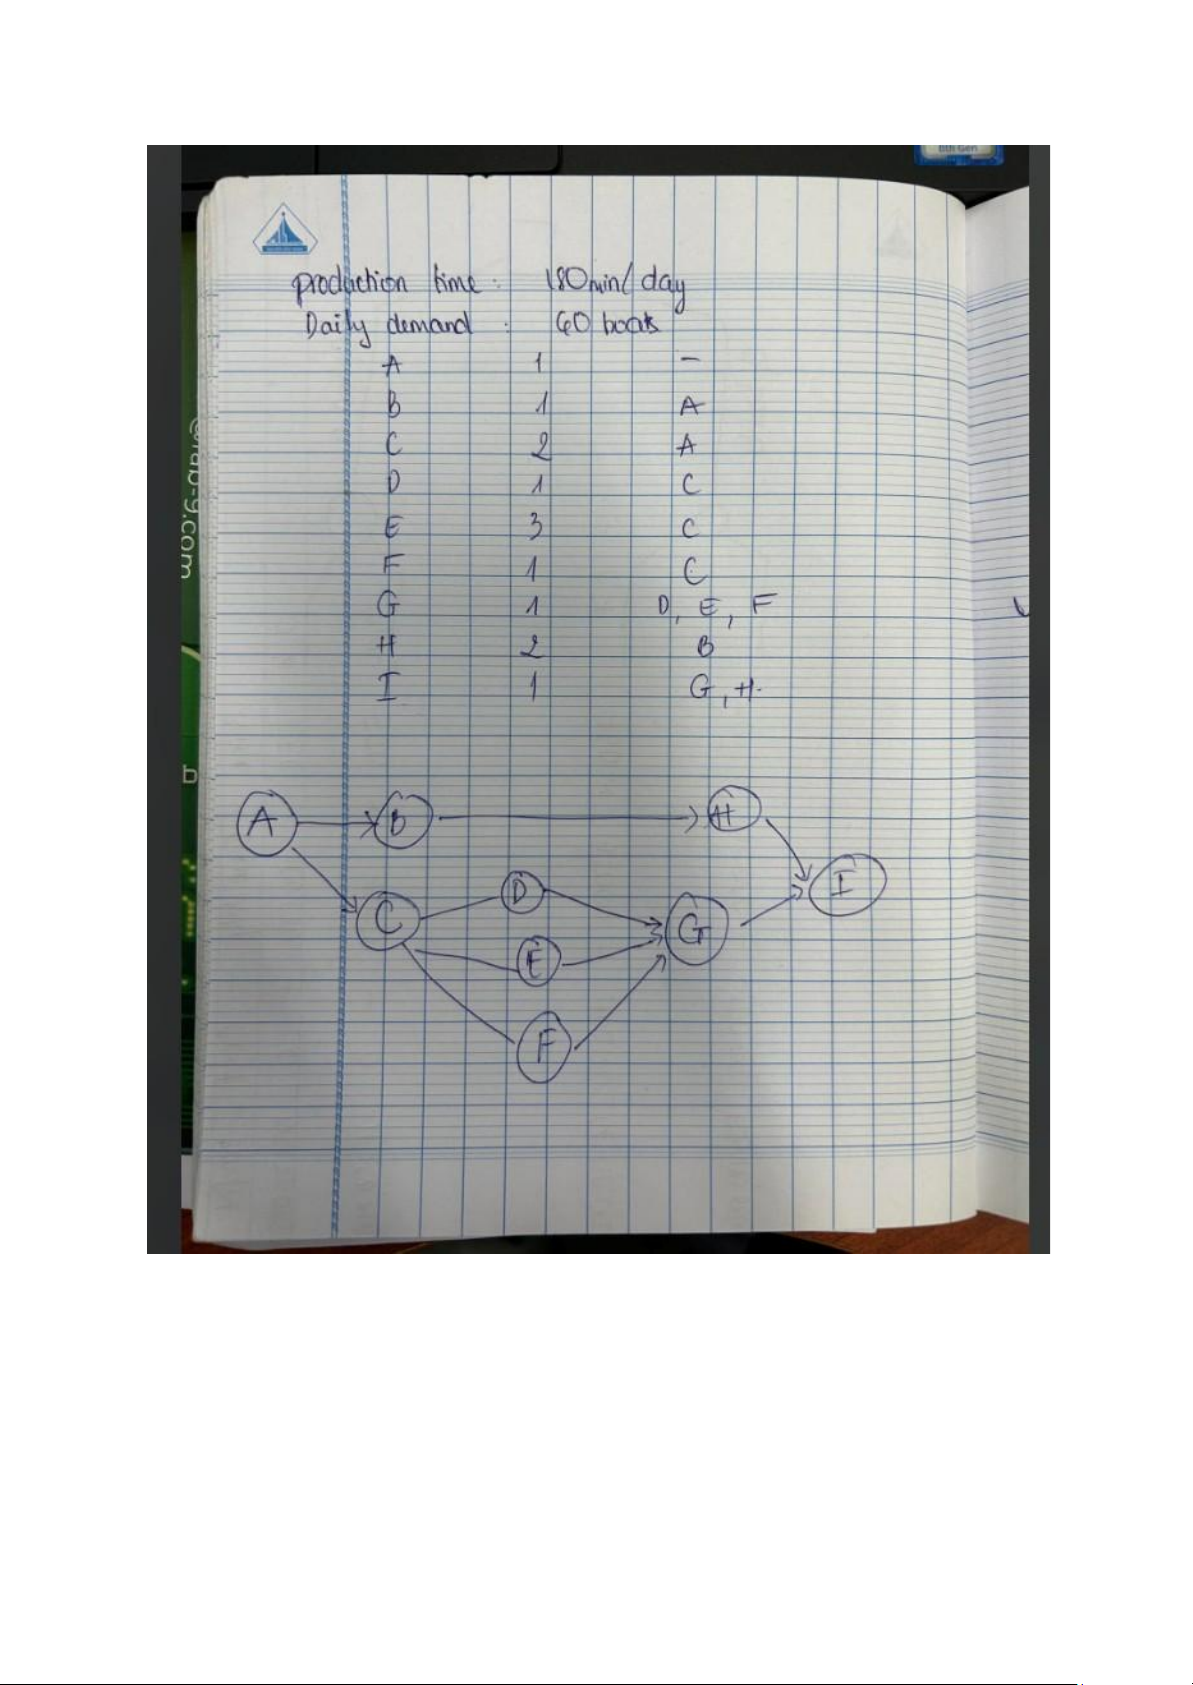 8th Gen
production time : 180min/ day
Daily demand : 60 boats
A 1 -
B 1 A
C 2 A
D 1 C
E 3 C
F 1 C
G 1 D, E, F
H 2 B
I 1 G, H.
b
A B H
I
D
C G
E
F